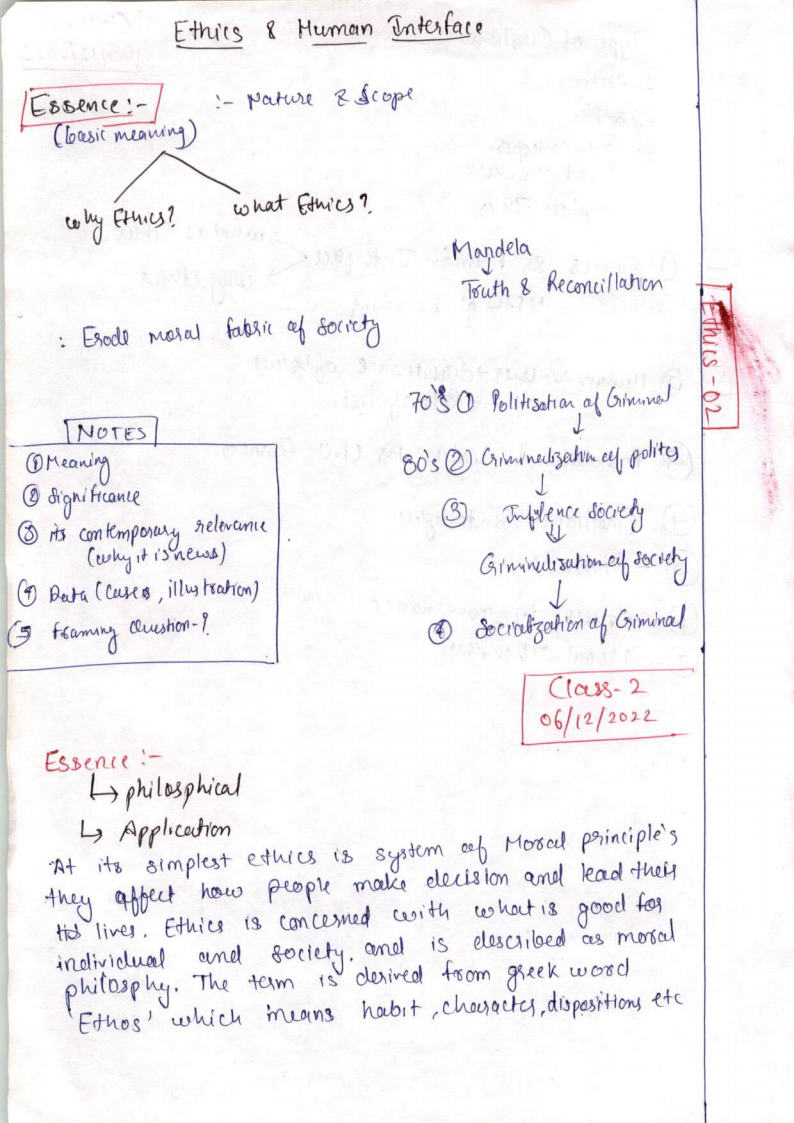 Ethics & Human Interface
Essence :-
:- Nature & Scope
(basic meaning)
why Ethics?
what Ethics?
Mandela
↓
Truth & Reconcillation
: Erode moral fabric of society
Ethics - 02
70's ① Politisation of Criminal
↓
80's ② Criminalization of politcs
↓
③ Influence society
⇓
Criminalisation of society
↓
④ Socialization of Criminal
NOTES
① Meaning
② Significance
③ its contemporary relevance
(why it is news)
④ Data (Cases, illustration)
⑤ framing Question-?
Class-2
06/12/2022
Essence :-
↳ philosphical
↳ Application
At its simplest ethics is system of Moral principle's
they affect how people make decision and lead their
lives. Ethics is concerned with what is good for
individual and society. and is described as moral
philosphy. The term is derived from greek word
'Ethos' which means habit, character, dispositions etc